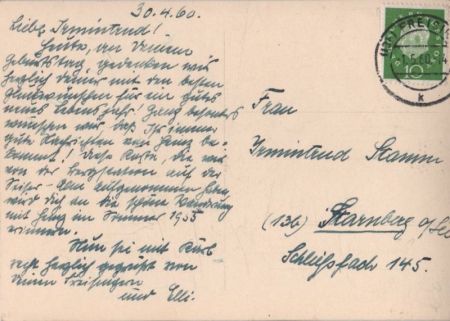 30.4.60.
Liebe Irmintrud!
Heute, an Deinem
Geburtstag, gedenken wir
herzlich Deiner mit den besten
Glückwünschen für ein gutes
neues Lebensjahr! Ganz besonders
wünschen wir daß Ihr immer
gute Nachrichten von Heinz be-
kommt! Diese Karte, die wir
von der Bergstation auf der
Seiser-Alm aufgenommen haben,
wird Dich an die schöne Wanderung
mit Heinz im Sommer 1955
erinnern.
Nun sei mit Kurt
recht herzlich gegrüßt von
Deinen Freisingern
und Elli.
Frau
Irmintrud Stamm
(13b) Starnberg a/See
Schließfach 145.
FREISING
1.5.60
k
10